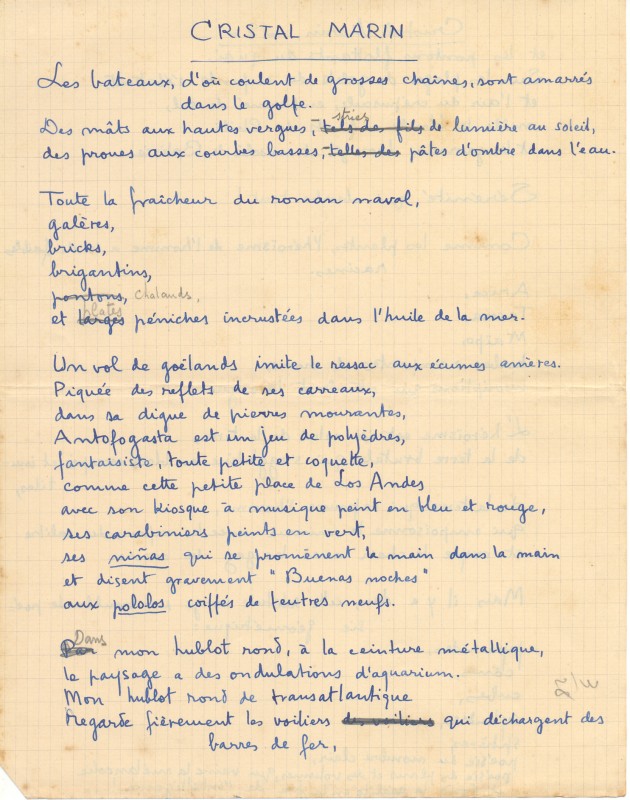 CRISTAL MARIN
Les bateaux, d'où coulent de grosses chaînes, sont amarrés
dans le golfe.
stries
Des mâts aux hautes vergues, – tels des fils de lumière au soleil,
des proues aux courbes basses, – telles des pâtes d'ombre dans l'eau.
Toute la fraîcheur du roman naval,
galères,
bricks,
brigantins,
pontons, Chalands,
plates
et larges péniches incrustées dans l'huile de la mer.
Un vol de goëlands imite le ressac aux écumes amères.
Piquée des reflets de ses carreaux,
dans sa digue de pierres mourantes,
Antofogasta est un jeu de polyèdres,
fantaisiste, toute petite et coquette,
comme cette petite place de Los Andes
avec son kiosque à musique peint en bleu et rouge,
ses carabiniers peints en vert,
ses niñas qui se promènent la main dans la main
et disent gravement "Buenas noches"
aux pololos coiffés de feutres neufs.
Dans
Par mon hublot rond, à la ceinture métallique,
le paysage a des ondulations d'aquarium.
Mon hublot rond de transatlantique
Regarde fièrement les voiliers des voiliers qui déchargent des
barres de fer,